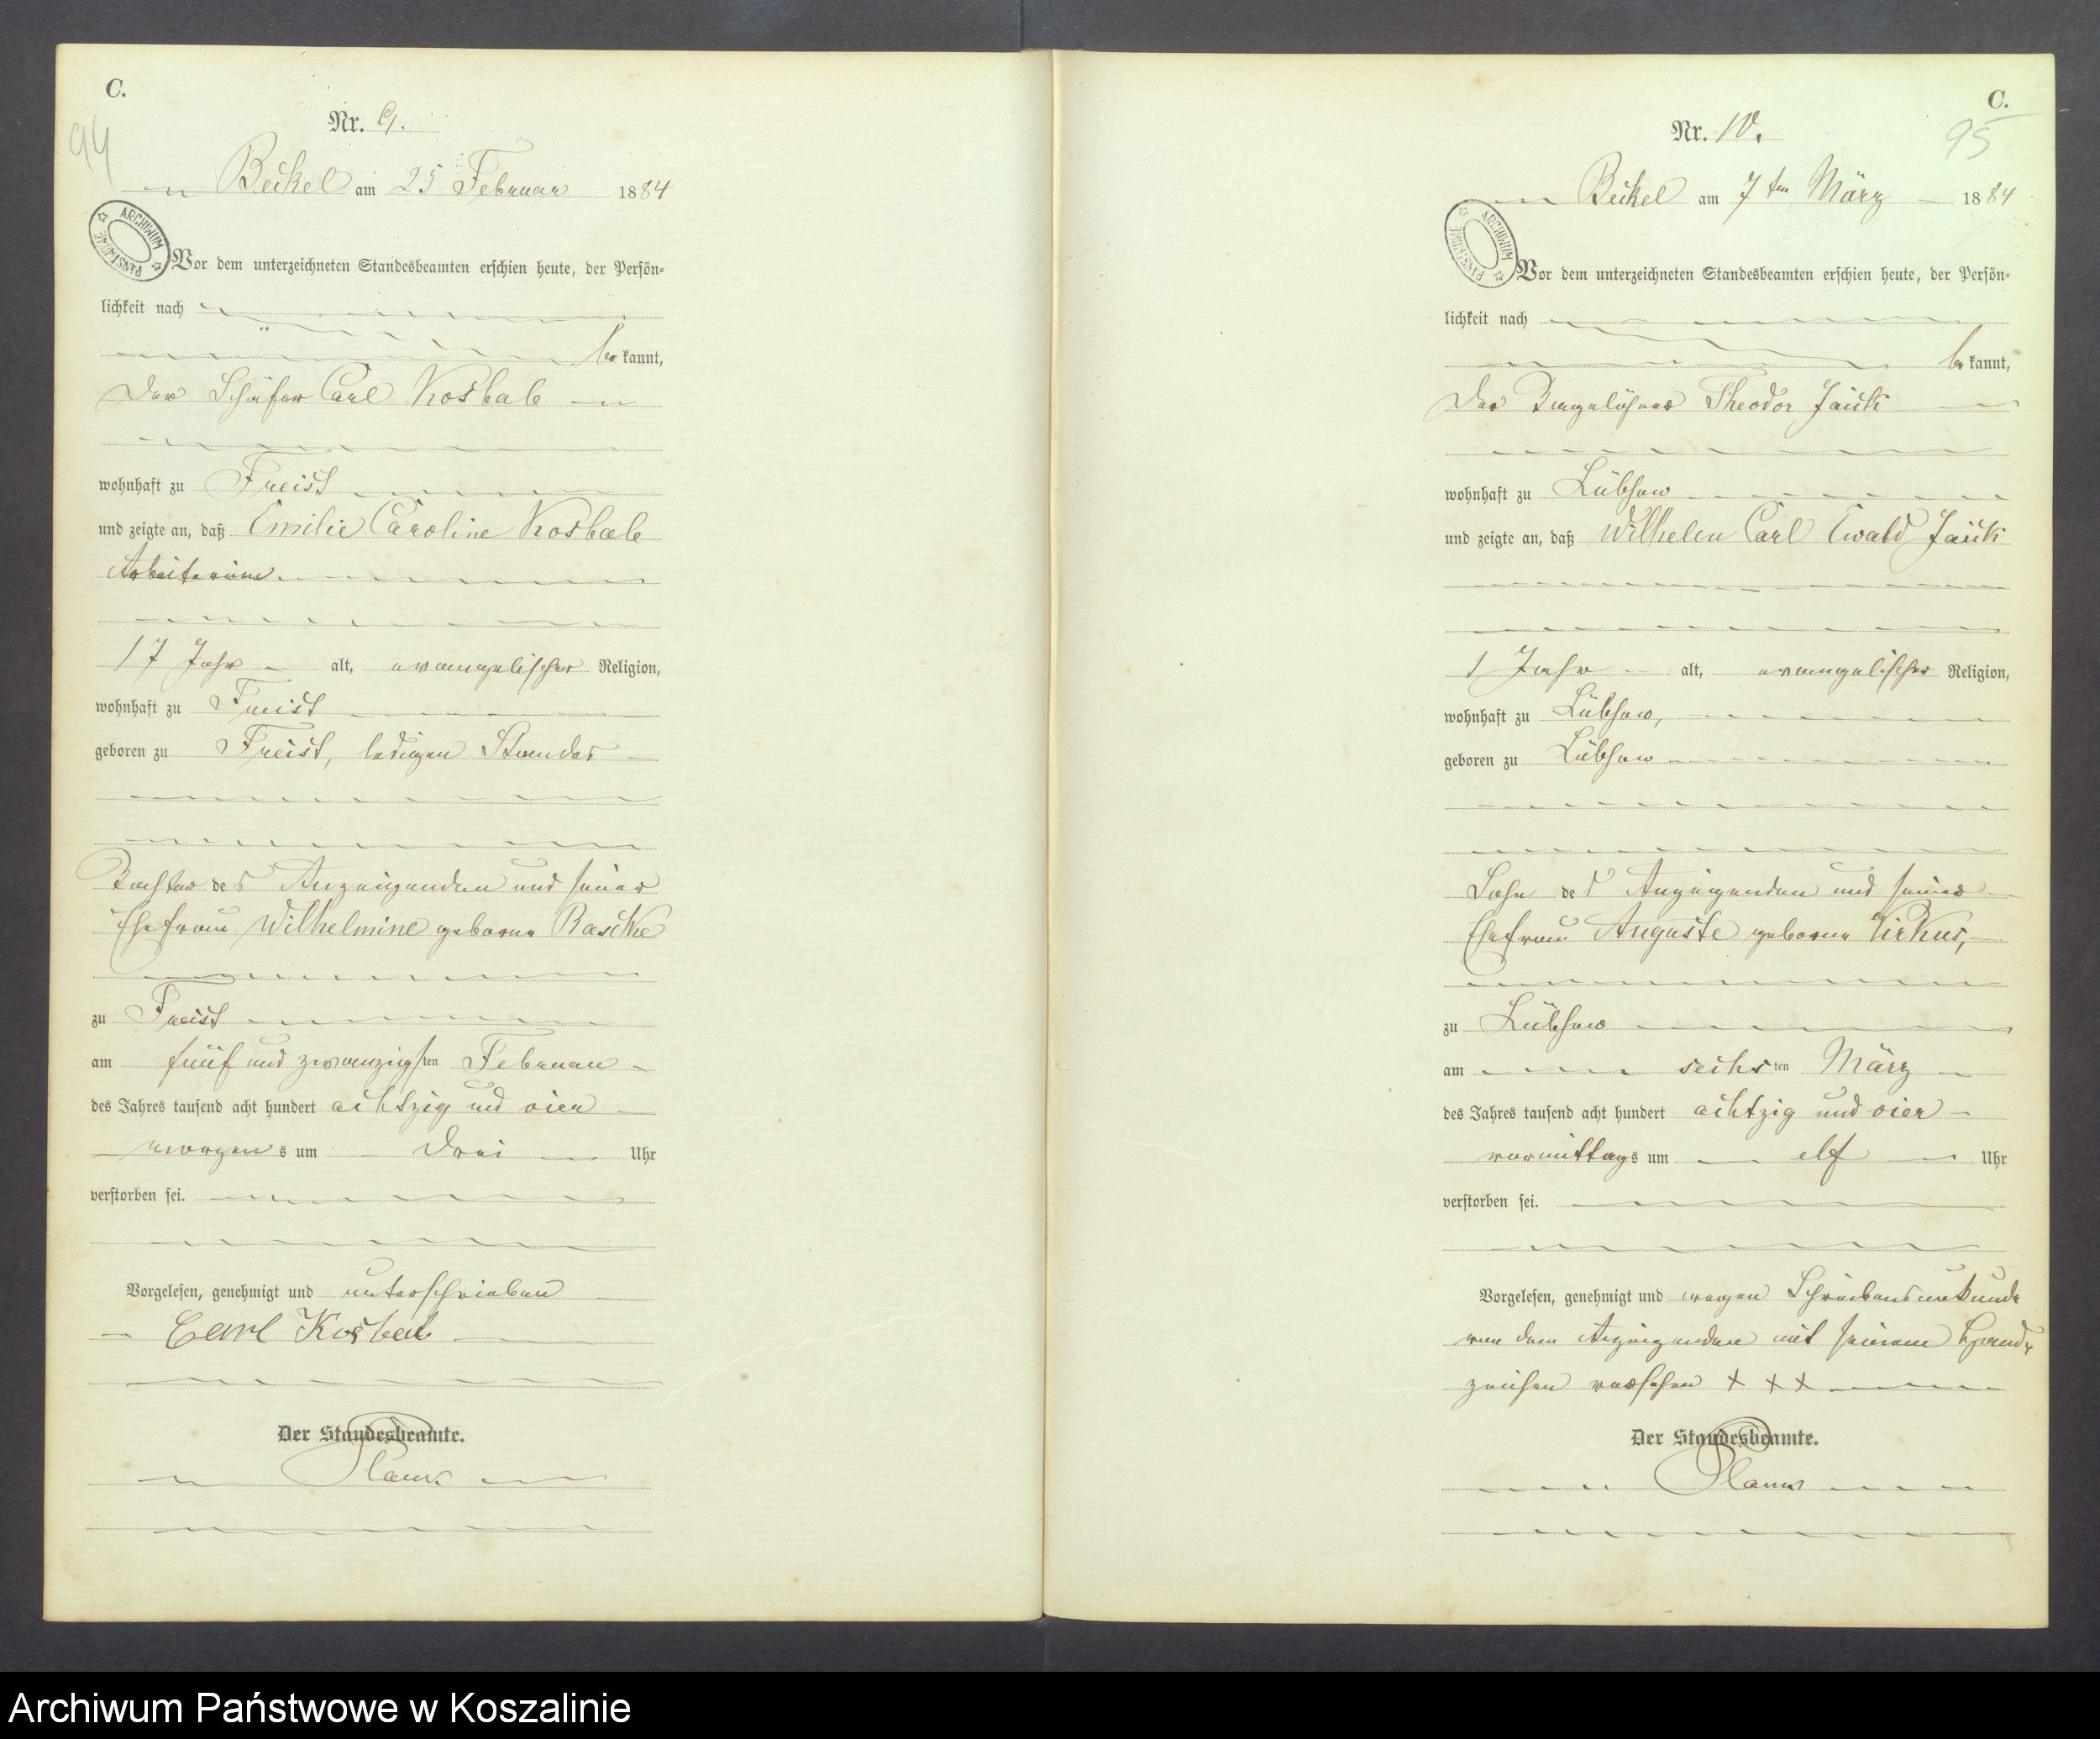 C.
94
Nr. 9.
Beckel am 25 Februar 1884
ARCHIWUM PAŃSTWOWE
Vor dem unterzeichneten Standesbeamten erschien heute, der Persön-
lichkeit nach
be kannt,
der Schäfer Carl Kosbab
wohnhaft zu Freist
und zeigte an, daß Emilie Caroline Kosbab
Arbeiterin
17 Jahr alt, evangelischer Religion,
wohnhaft zu Freist
geboren zu Freist, ledigen Standes
Tochter des Anzeigenden und seiner
Ehefrau Wilhelmine geborne Raschke
zu Freist
am fünf und zwanzigsten Februar
des Jahres tausend acht hundert achtzig und vier
morgens um drei Uhr
verstorben sei.
Vorgelesen, genehmigt und unterschrieben
Carl Kosbab
Der Standesbeamte.
C.
95
Nr. 10.
Beckel am 7ten März 1884
ARCHIWUM PAŃSTWOWE
Vor dem unterzeichneten Standesbeamten erschien heute, der Persön-
lichkeit nach
be kannt,
der Tagelöhner Theodor
wohnhaft zu Lübsow
und zeigte an, daß Wilhelm Carl Ewald
1 Jahr alt, evangelischer Religion,
wohnhaft zu Lübsow,
geboren zu Lübsow
Sohn des Anzeigenden und seiner
Ehefrau Auguste geborne Kirkus,
zu Lübsow
am sechsten März
des Jahres tausend acht hundert achtzig und vier
vormittags um elf Uhr
verstorben sei.
Vorgelesen, genehmigt und wegen Schreibensunkunde
von dem Anzeigenden mit seinem Hand-
zeichen versehen + + +
Der Standesbeamte.
Archiwum Państwowe w Koszalinie